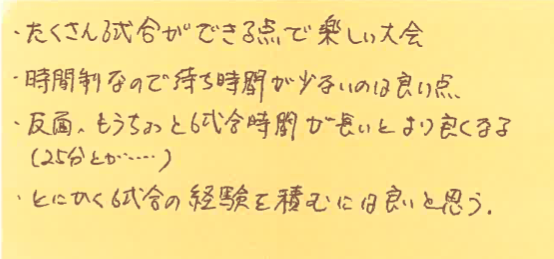 ・たくさん試合ができる点で楽しい大会
・時間制なので待ち時間が少ないのは良い点、
・反面、もうちょっと試合時間が長いとより良くなる
(25分とか……)
・とにかく試合の経験を積むには良いと思う.